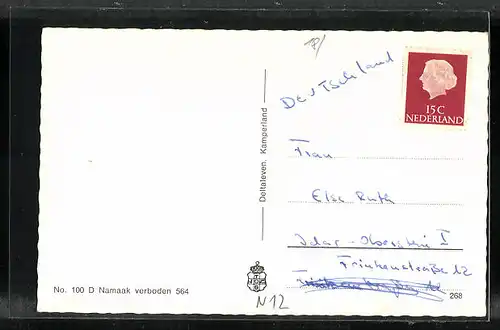 Deutschland
15 C
NEDERLAND
Deltaleven, Kamperland
Frau
Else Ruth
Idar-Oberstein I
Finkenstraße 12
No. 100 D Namaak verbeden 564
268
N12